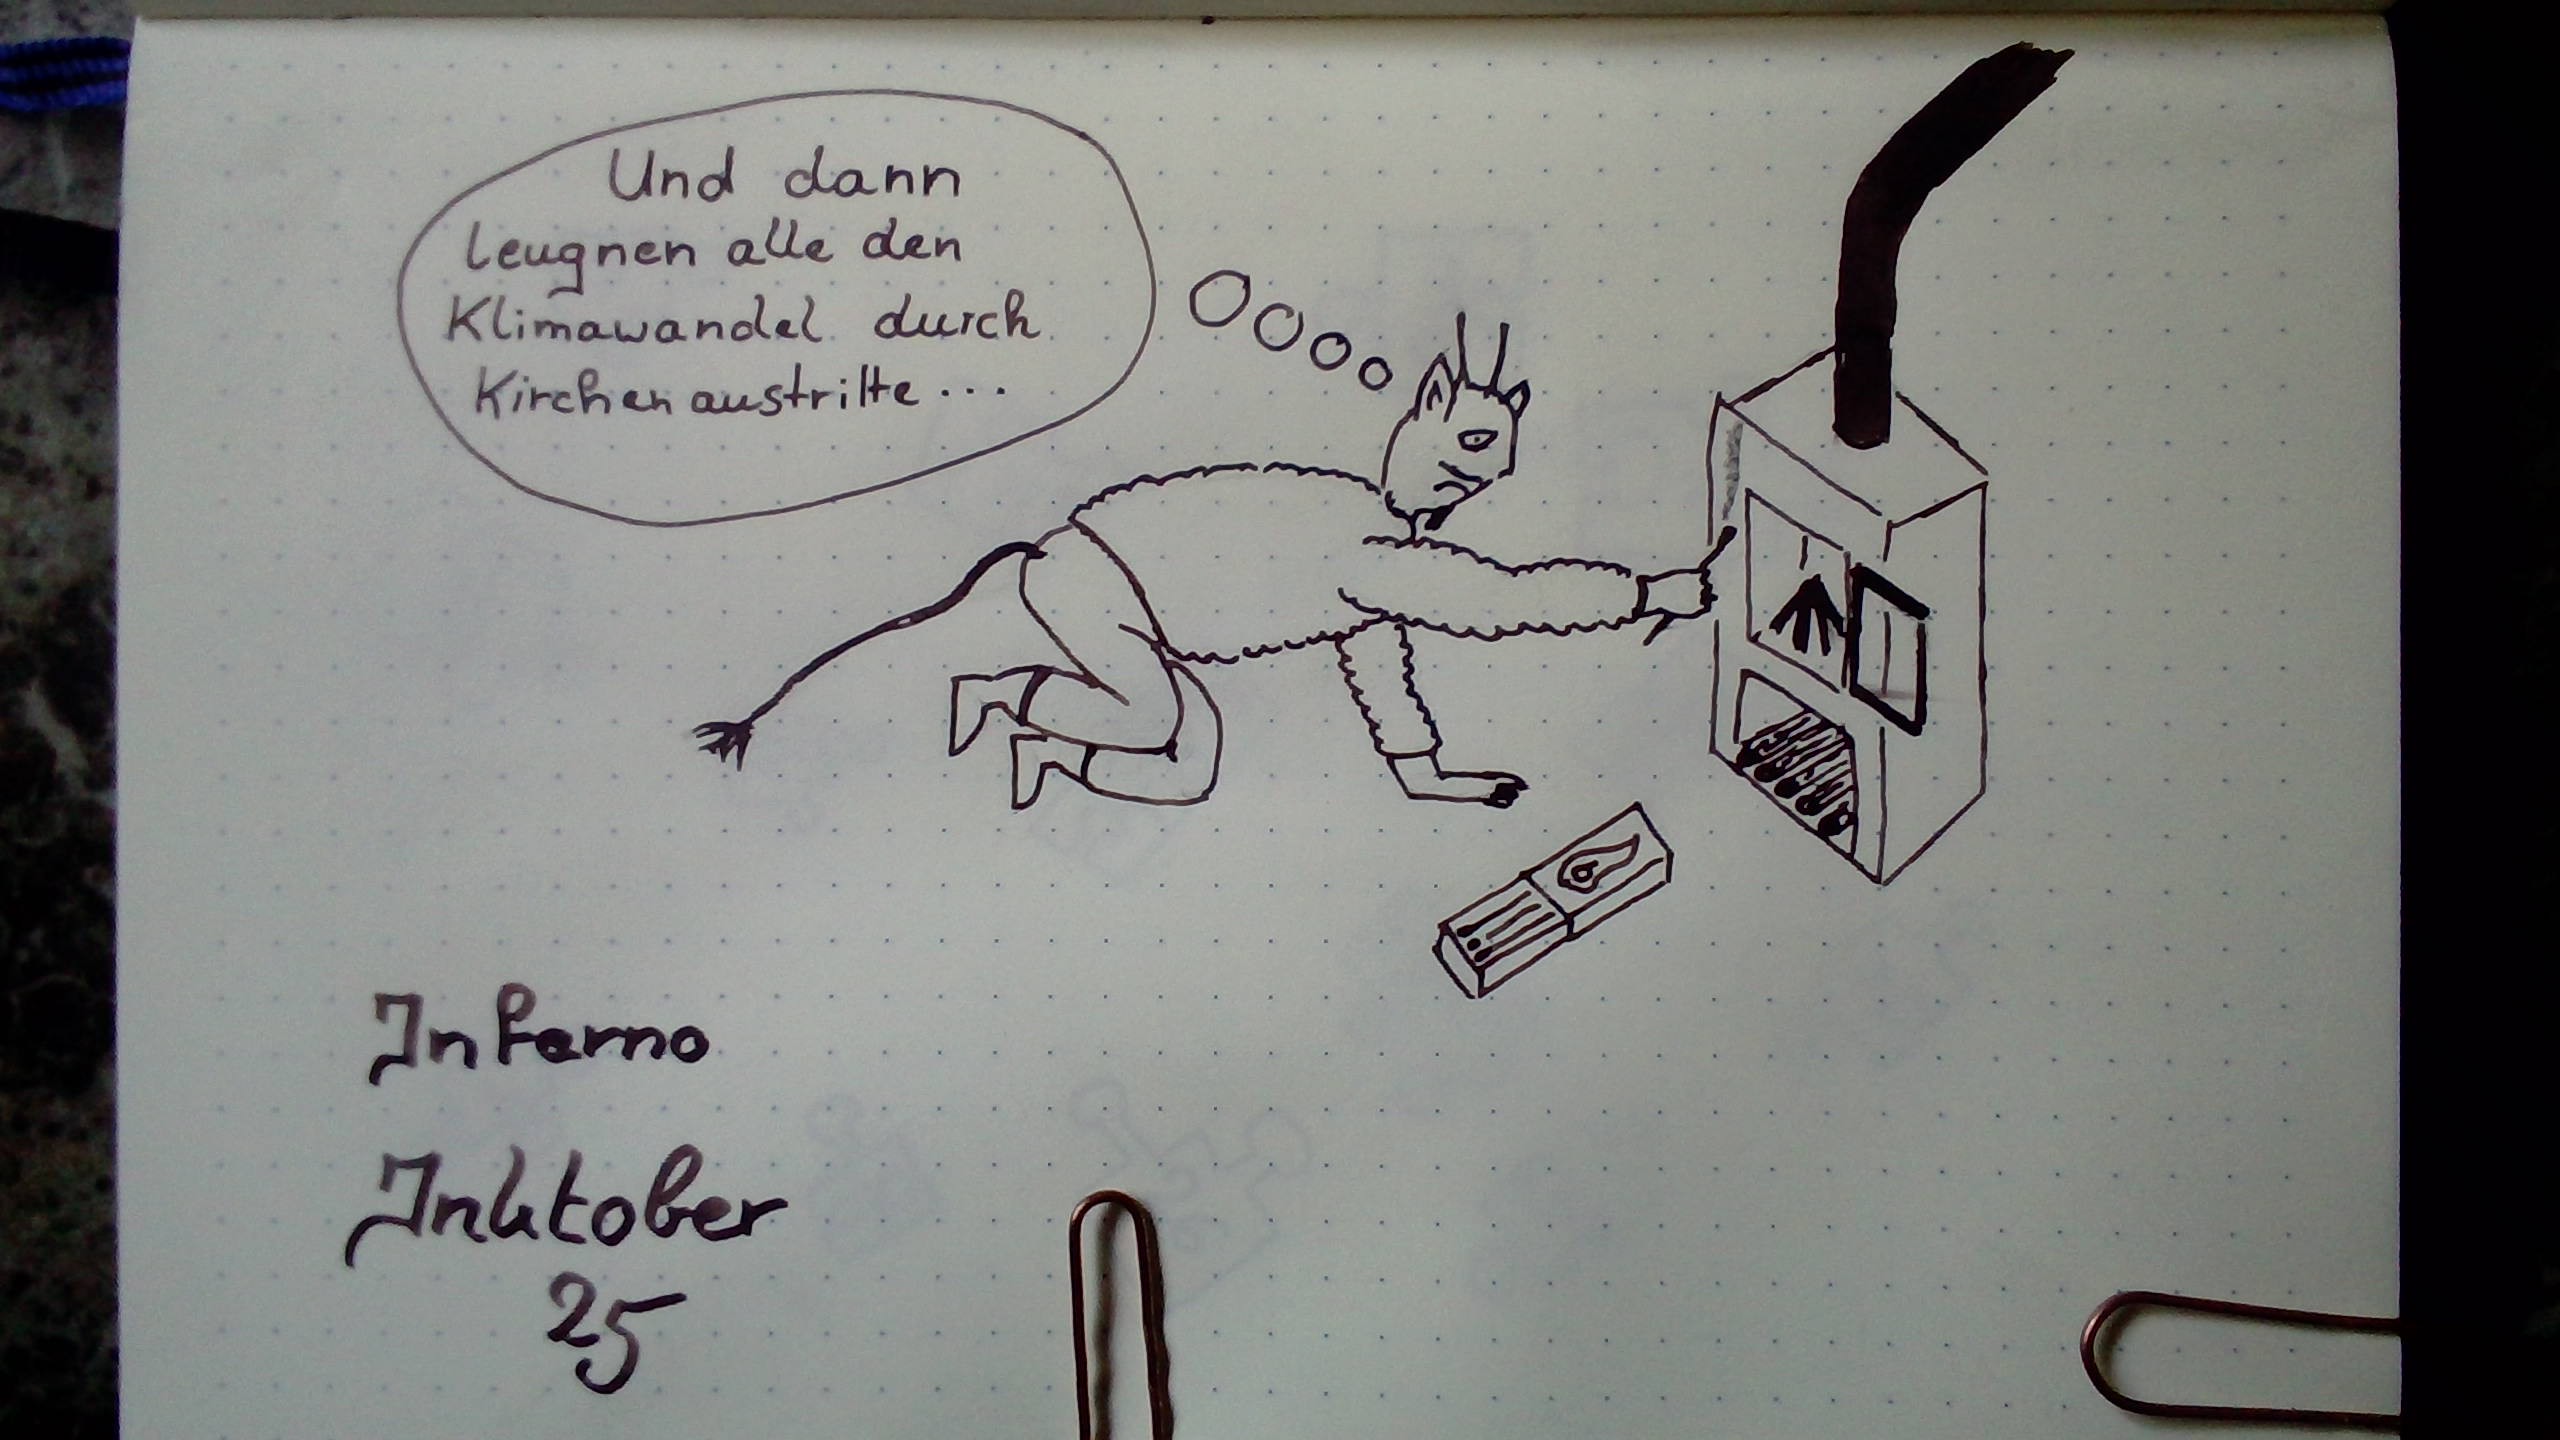 Und dann
leugnen alle den
Klimawandel durch
Kirchenaustritte...
Inferno
Inktober
25